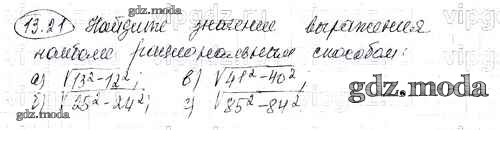 13.21 Найдите значение выражения
наиболее рациональным способом:
а) √13²-12²; в) √41²-40²,
б) √25²-24²; г) √85²-84².
gdz.moda
gdz.moda